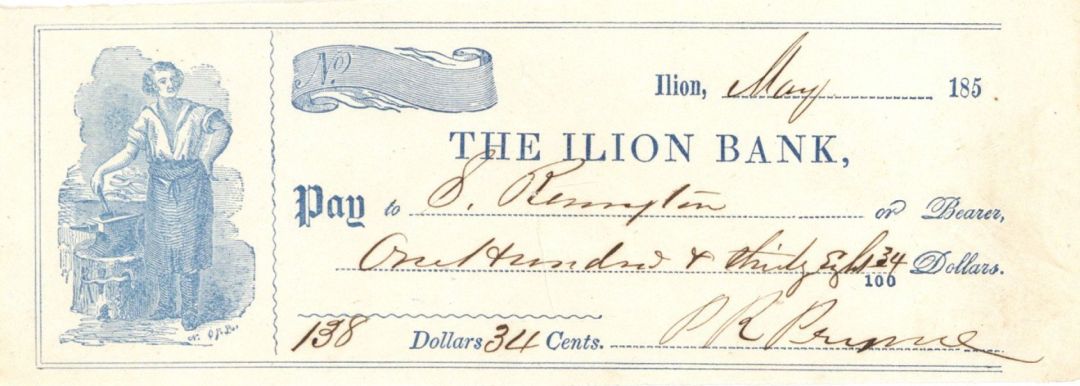 No
Ilion, May 185
THE ILION BANK,
Pay to S. Remington or Bearer,
One Hundred & thirty Eight 34/100 Dollars.
138 Dollars 34 Cents. P R Pryne